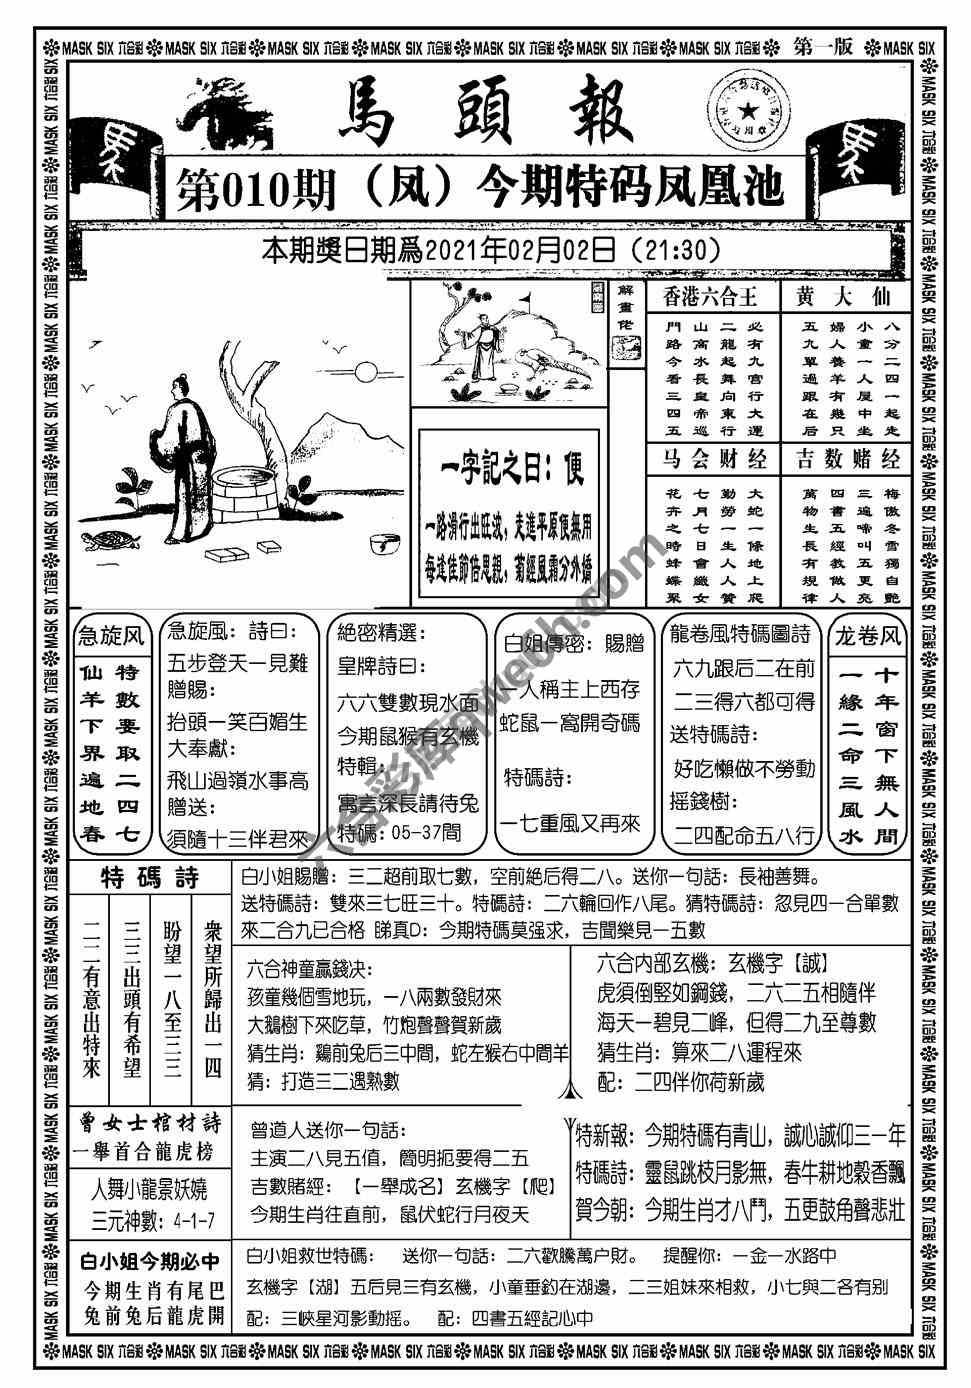 MASK SIX 六合彩 MASK SIX 六合彩 MASK SIX 六合彩 MASK SIX 六合彩 MASK SIX 六合彩 MASK SIX 六合彩 MASK SIX 六合彩 第一版 MASK SIX
馬頭報
第010期（凤）今期特码凤凰池
本期獎日期爲2021年02月02日（21:30）
解畫佬
一字記之曰：便
一路滑行出旺波，走進平原便無用
每逢佳節倍思親，菊經風霜分外嬌
香港六合王
必有九宫行大運
二龍起舞向東行
山高水長皇帝巡
門路今看三四五
黄大仙
八分二四一起走
小童一人屋中坐
婦人養羊有幾只
五九單過跟在后
马会财经
大蛇一條地上爬
勤勞一生人人贊
七月七日會織女
花卉之時蜂蝶聚
吉数赌经
梅傲冬雪獨自艷
三遍啼叫五更亮
四書五經教做人
萬物生長有規律
急旋风
特數要取二四七
仙羊下界遍地春
急旋風：詩曰：
五步登天一見難
贈賜：
抬頭一笑百媚生
大奉獻：
飛山過嶺水事高
贈送：
須隨十三伴君來
絕密精選：
皇牌詩曰：
六六雙數現水面
今期鼠猴有玄機
特輯：
寓言深長請待兔
特碼：05-37間
白姐傳密：賜贈
一人稱主上西存
蛇鼠一窩開奇碼
特碼詩：
一七重風又再來
龍卷風特碼圖詩
六九跟后二在前
二三得六都可得
送特碼詩：
好吃懶做不勞動
摇錢樹：
二四配命五八行
龙卷风
十年窗下無人間
一緣二命三風水
特碼詩
衆望所歸出一四
盼望一八至三三
三三出頭有希望
二二有意出特來
白小姐賜贈：三二超前取七數，空前絕后得二八。送你一句話：長袖善舞。
送特碼詩：雙來三七旺三十。特碼詩：二六輪回作八尾。猜特碼詩：忽見四一合單數
來二合九已合格 睇真D：今期特碼莫强求，吉聞樂見一五數
六合神童贏錢决：
孩童幾個雪地玩，一八兩數發財來
大鵝樹下來吃草，竹炮聲聲賀新歲
猜生肖：鷄前兔后三中間，蛇左猴右中間羊
猜：打造三二遇熟數
六合内部玄機：玄機字【誠】
虎須倒竪如鋼錢，二六二五相隨伴
海天一碧見二峰，但得二九至尊數
猜生肖：算來二八運程來
配：二四伴你荷新歲
曾女士棺材詩
一舉首合龍虎榜
人舞小龍景妖嬈
三元神數：4-1-7
曾道人送你一句話：
主演二八見五值，簡明扼要得二五
吉數賭經：【一舉成名】玄機字【爬】
今期生肖往直前，鼠伏蛇行月夜天
特新報：今期特碼有青山，誠心誠仰三一年
特碼詩：靈鼠跳枝月影無，春牛耕地穀香飄
賀今朝：今期生肖才八門，五更鼓角聲悲壯
白小姐今期必中
今期生肖有尾巴
兔前兔后龍虎開
白小姐救世特碼： 送你一句話：二六歡騰萬户財。 提醒你：一金一水路中
玄機字【湖】五后見三有玄機，小童垂釣在湖邊，二三姐妹來相救，小七與二各有别
配：三峽星河影動摇。 配：四書五經記心中
MASK SIX 六合彩 MASK SIX 六合彩 MASK SIX 六合彩 MASK SIX 六合彩 MASK SIX 六合彩 MASK SIX 六合彩 MASK SIX 六合彩 MASK SIX 六合彩 MASK SIX